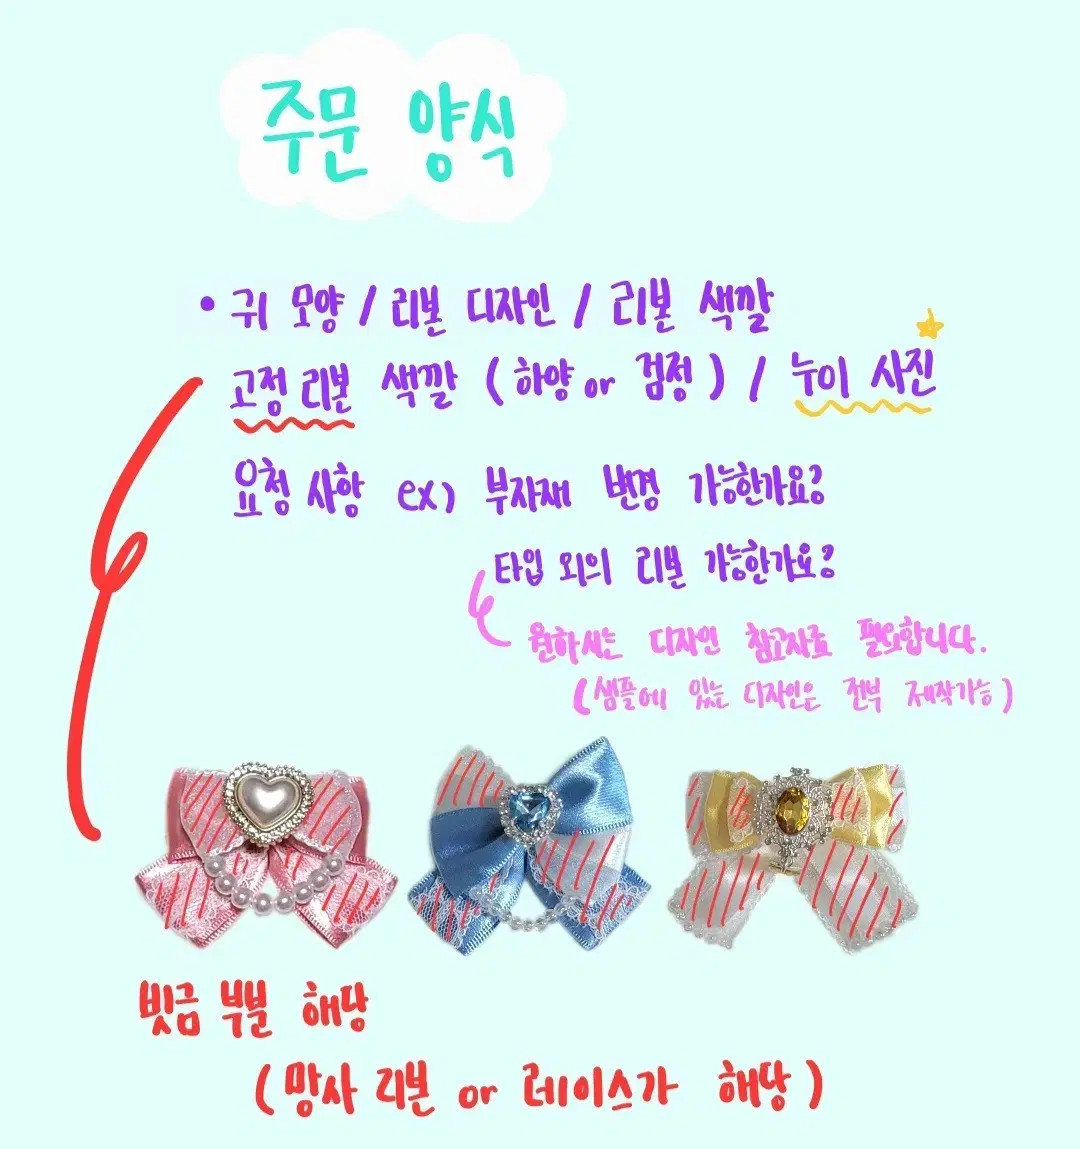 주문 양식
• 귀 모양 / 리본 디자인 / 리본 색깔
고정 리본 색깔 (하양 or 검정) / 누이 사진
요청 사항 ex) 부자재 변경 가능한가요?
타입 외의 리본 가능한가요?
원하시는 디자인 참고자료 필요합니다.
(샘플에 있는 디자인은 전부 제작가능)
빗금 부분 해당
(망사 리본 or 레이스가 해당)